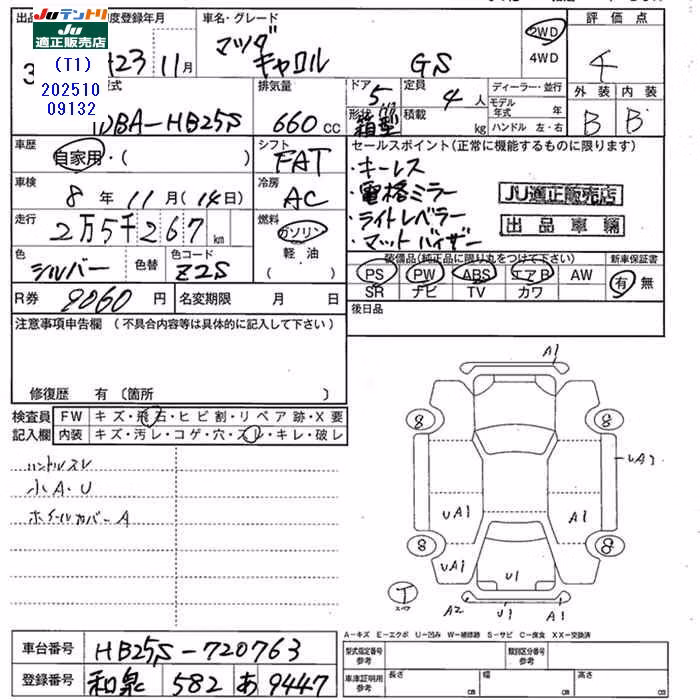 JUテントリ
JU適正販売店
(T1)
202510
09132
出品 度登録年月 車名・グレード 評価点
H23 11月 マツダ キャロル GS 2WD 4WD 4
型式 排気量 ドア 定員 ディーラー・並行 外装 内装
DBA-HB25S 660cc 5 4人 モデル年式 年 B B
形状 箱型 積載 kg ハンドル 左・右
車歴 シフト セールスポイント(正常に機能するものに限ります)
自家用・( ) FAT ・キーレス
車検 冷房 ・電格ミラー JU適正販売店
8年 11月(14日) AC ・ライトレベラー 出品車輛
走行 燃料 ・マットバイザー
2万5千267km ガソリン 軽油 ( )
色 色替 色コード 装備品(純正品に限り丸をつけて下さい) 新車保証書
シルバー Z2S PS PW ABS エアB AW 有・無
SR ナビ TV カワ
R券 9060円 名変期限 月 日
後日品
注意事項申告欄 (不具合内容等は具体的に記入して下さい)
修復歴 有 〔箇所 〕
検査員記入欄 FW キズ・飛石・ヒビ割・リペア跡・X要
内装 キズ・汚レ・コゲ・穴・スレ・キレ・破レ
ハンドルスレ
小A・U
ホイールカバーA
A1
8 8
UA1 A1
8 8
UA1
U1
T スペア
A2 U1 A1
A-キズ E-エクボ U-凹み W-補修跡 S-サビ C-腐食 XX-交換済
車台番号 HB25S-720763
型式指定番号 参考 類別区分番号 参考
登録番号 和泉 582 あ 9447
車庫証明用 参考 長さ cm 幅 cm 高さ cm